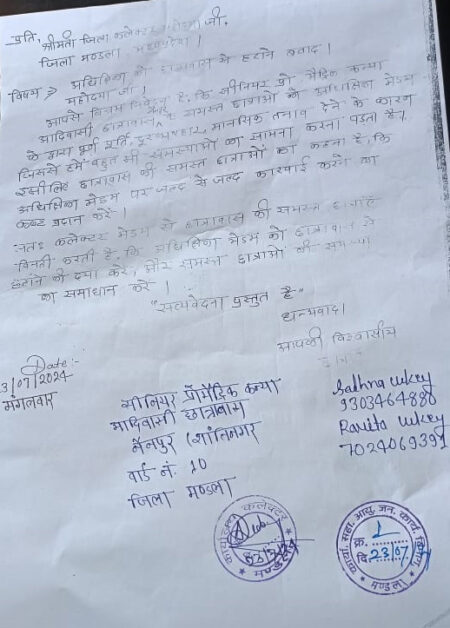 प्रति,
श्रीमती जिला कलेक्टर जी,
जिला मण्डला, मध्यप्रदेश।
विषय → अधिक्षिका को छात्रावास से हटाने बावाद।
महोदया जी।
आपसे विनम्र निवेदन है, कि सीनियर प्री मैट्रिक कन्या
आदिवासी छात्रावास समस्त छात्राओं को अधिक्षिका मेडम
के द्वारा पूर्ण दुरव्यवहार, मानसिक तनाव देने के कारण
जिससे हमें बहुत सी समस्याओं का सामना करना पड़ता है,
इसीलिए छात्रावास की समस्त छात्राओं का कहना है, कि
अधिक्षिका मेडम पर जल्द से जल्द कारवाई करने का
कष्ट प्रदान करें।
अतः कलेक्टर मेडम से छात्रावास की समस्त छात्राएं
विनती करती है, कि अधिक्षिका मेडम को छात्रावास से
हटाने की दया करे, और समस्त छात्राओं की समस्या
का समाधान करें।
"सत्यवेदना प्रस्तुत है"
धन्यवाद।
आपकी विश्वासीय
Date:-
3/07/2024
मंगलवार
सीनियर प्रीमैट्रिक कन्या
आदिवासी छात्रावास
सेनपुर (शांतिनगर
वार्ड नं. 10
जिला मण्डला
Sadhna Uikey
9303464880
Ravita Uikey
7024069391
कार्यालय कलेक्टर
मण्डला
कार्या. सहा. आयु. जन. कार्य विभाग
क्र. 1
दि. 23/07/
मण्डला